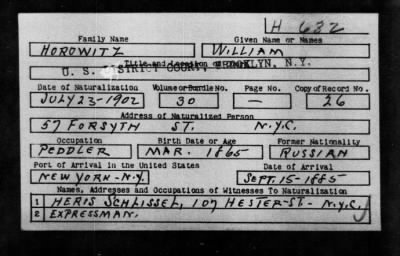 H-632
Family Name Given Name or Names
HOROWITZ WILLIAM
Title and Location of Court
U. S. DISTRICT COURT, BROOKLYN, N.Y.
Date of Naturalization Volume or Bundle No. Page No. Copy of Record No.
JULY 23-1902 30 — 26
Address of Naturalized Person
57 FORSYTH ST. N.Y.C.
Occupation Birth Date or Age Former Nationality
PEDDLER MAR. 1865 RUSSIAN
Port of Arrival in the United States Date of Arrival
NEW YORK-N.Y. SEPT. 15-1885
Names, Addresses and Occupations of Witnesses To Naturalization
1 HERIS SCHLISSEL, 107 HESTER-ST- N.Y.C.
2 EXPRESSMAN.